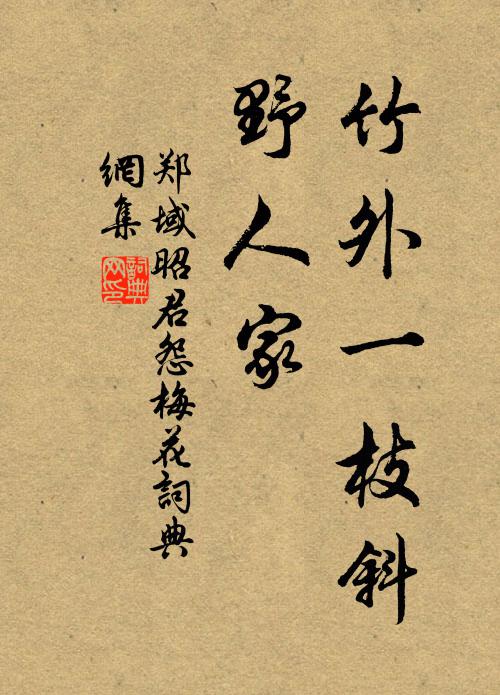 竹外一枝斜
野人家
郑域昭君怨梅花詞典
網集
詞典
网印